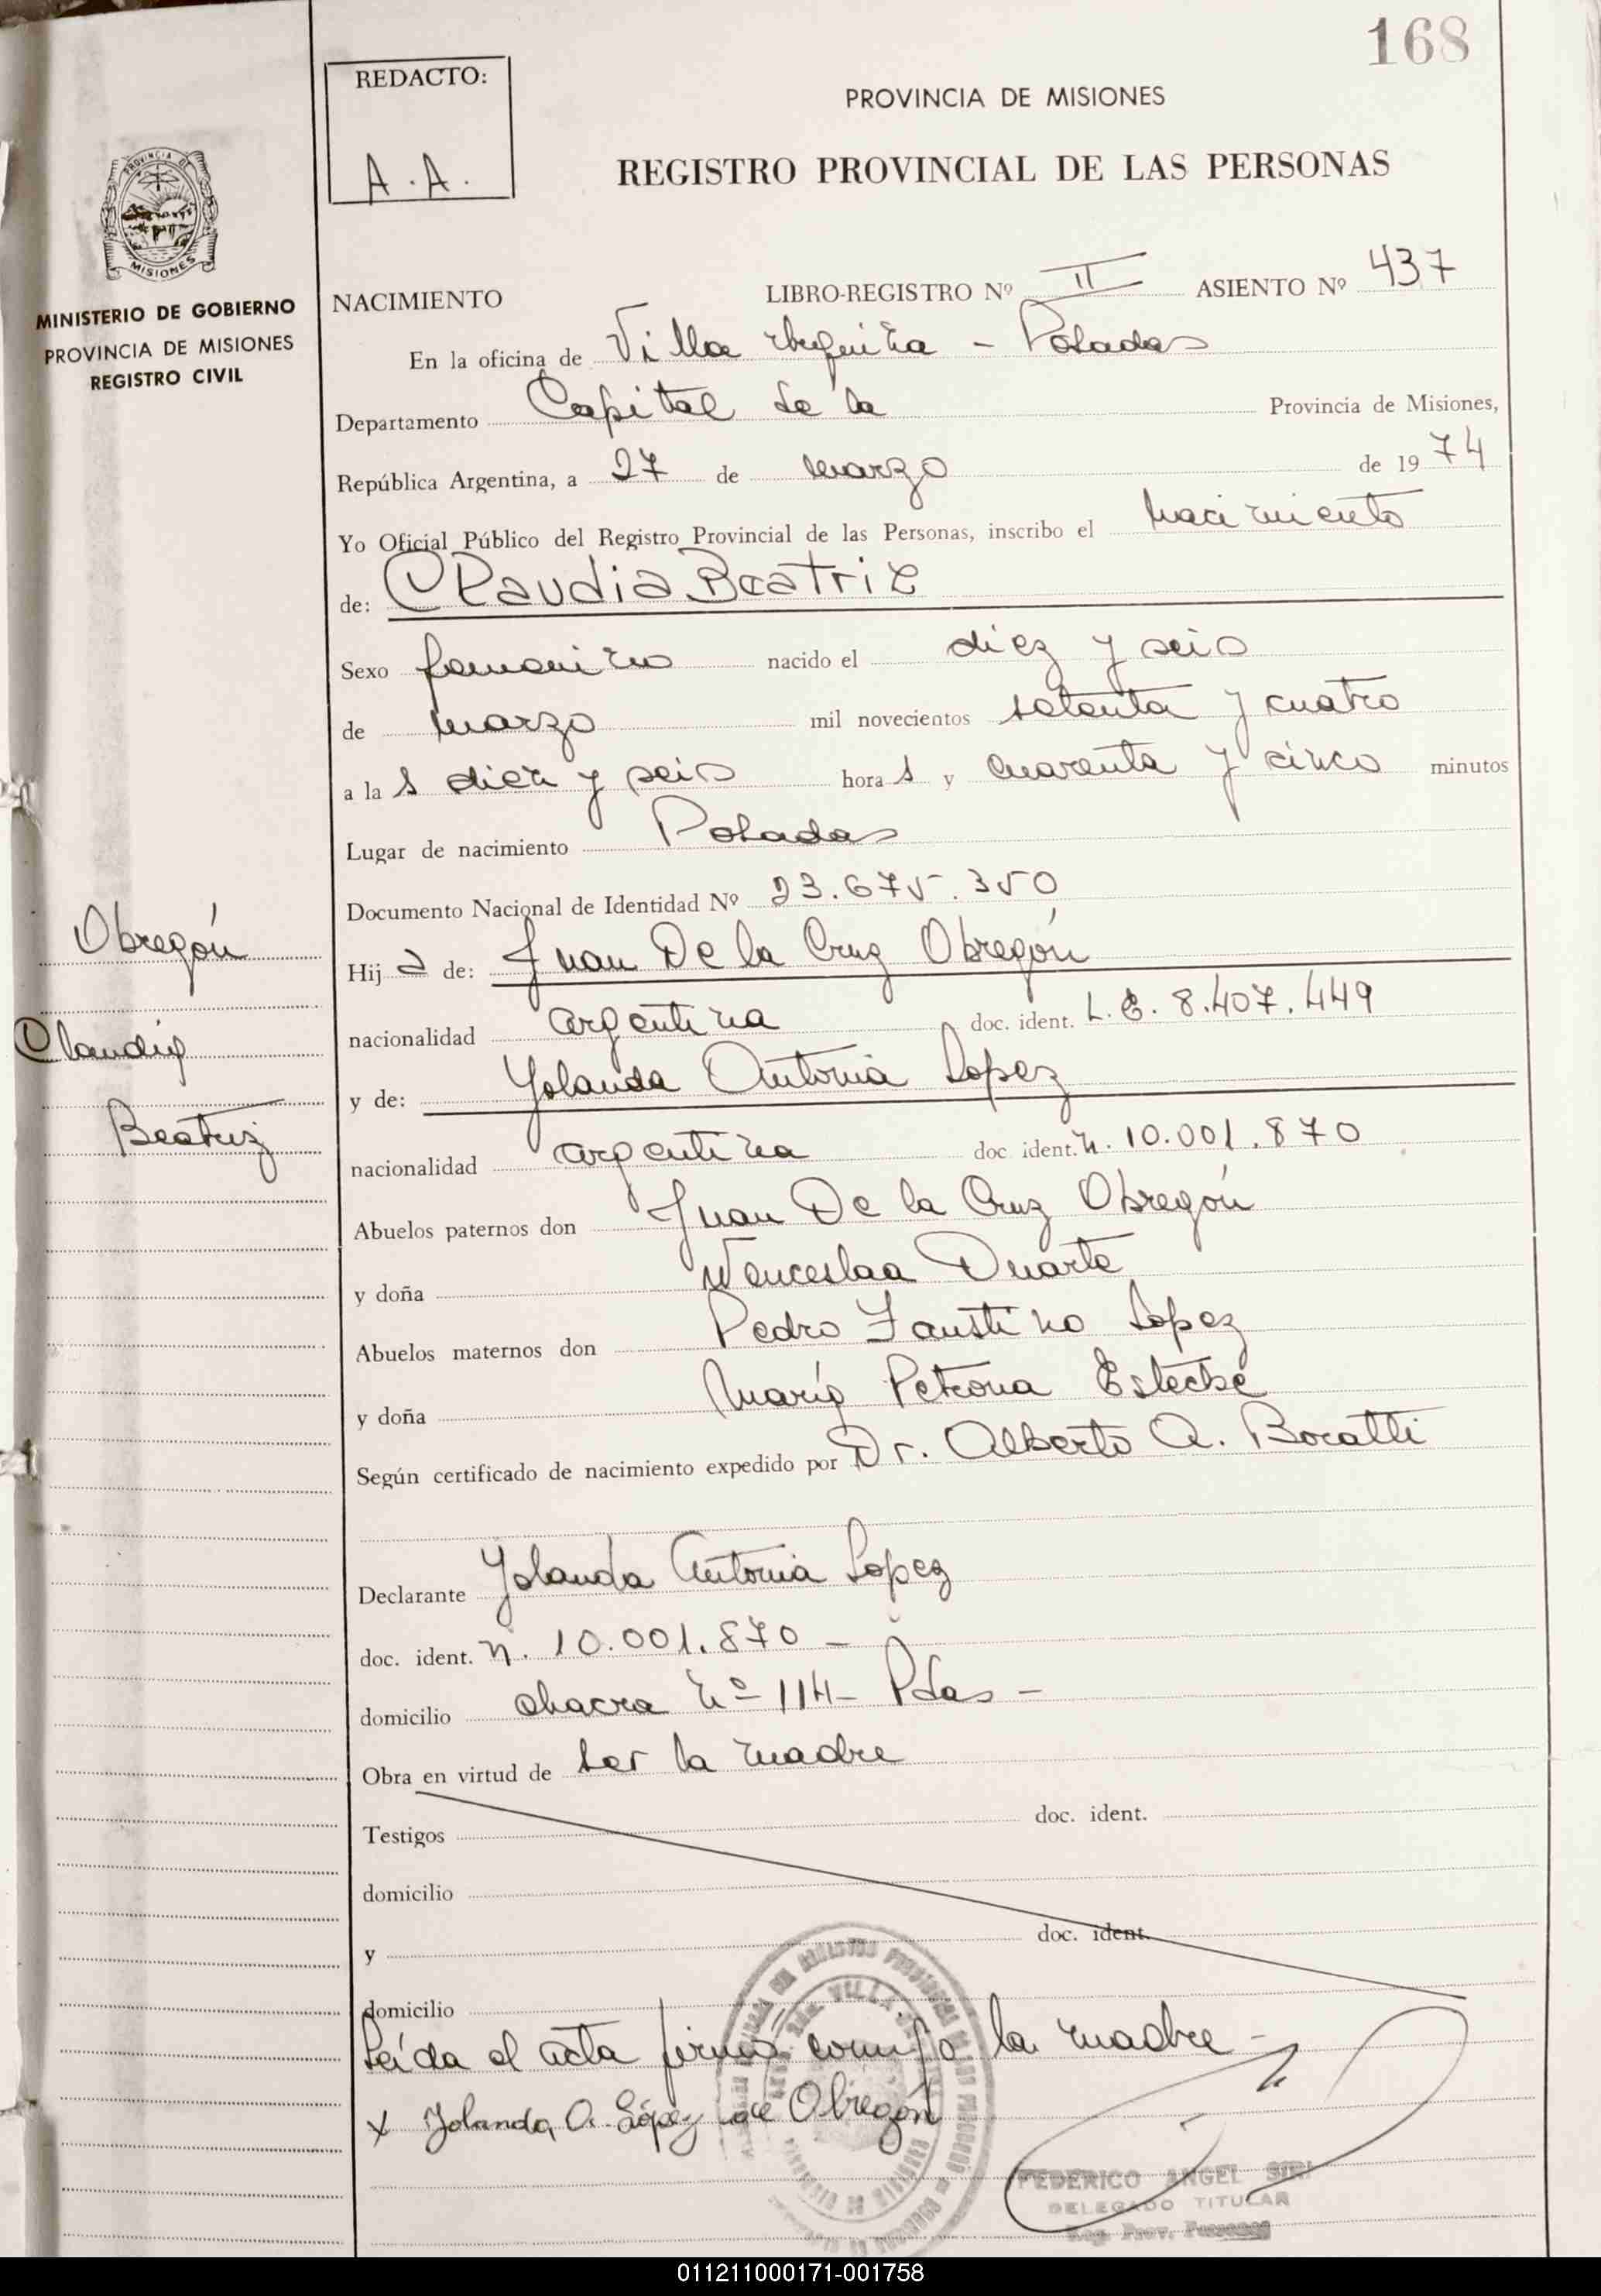 168
REDACTO:
A.A.
PROVINCIA DE MISIONES
REGISTRO PROVINCIAL DE LAS PERSONAS
PROVINCIA DE
MISIONES
MINISTERIO DE GOBIERNO
PROVINCIA DE MISIONES
REGISTRO CIVIL
NACIMIENTO LIBRO-REGISTRO Nº II ASIENTO Nº 437
En la oficina de Villa Urquiza - Posadas
Departamento Capital de la Provincia de Misiones,
República Argentina, a 27 de marzo de 1974
Yo Oficial Público del Registro Provincial de las Personas, inscribo el nacimiento
de: Claudia Beatriz
Sexo femenino nacido el diez y seis
de marzo mil novecientos setenta y cuatro
a la s diez y seis hora s y cuarenta y cinco minutos
Lugar de nacimiento Posadas
Documento Nacional de Identidad Nº 23.675.350
Obregón
Hij a de: Juan De la Cruz Obregón
nacionalidad argentina doc. ident. L.E. 8.407.449
Claudia
y de: Yolanda Antonia Lopez
Beatriz
nacionalidad argentina doc ident. n. 10.001.870
Abuelos paternos don Juan De la Cruz Obregón
y doña Wenceslaa Duarte
Abuelos maternos don Pedro Faustino Lopez
y doña María Petrona Esteche
Según certificado de nacimiento expedido por Dr. Alberto A. Bocatti
Declarante Yolanda Antonia Lopez
doc. ident. n. 10.001.870 -
domicilio chacra nº 114 - Pdas -
Obra en virtud de ser la madre
Testigos doc. ident.
domicilio
y doc. ident.
domicilio
Leída el acta firma conmigo la madre -
x Yolanda A. López de Obregón
FEDERICO ANGEL SIRI
DELEGADO TITULAR
Reg. Prov. Personas
011211000171-001758